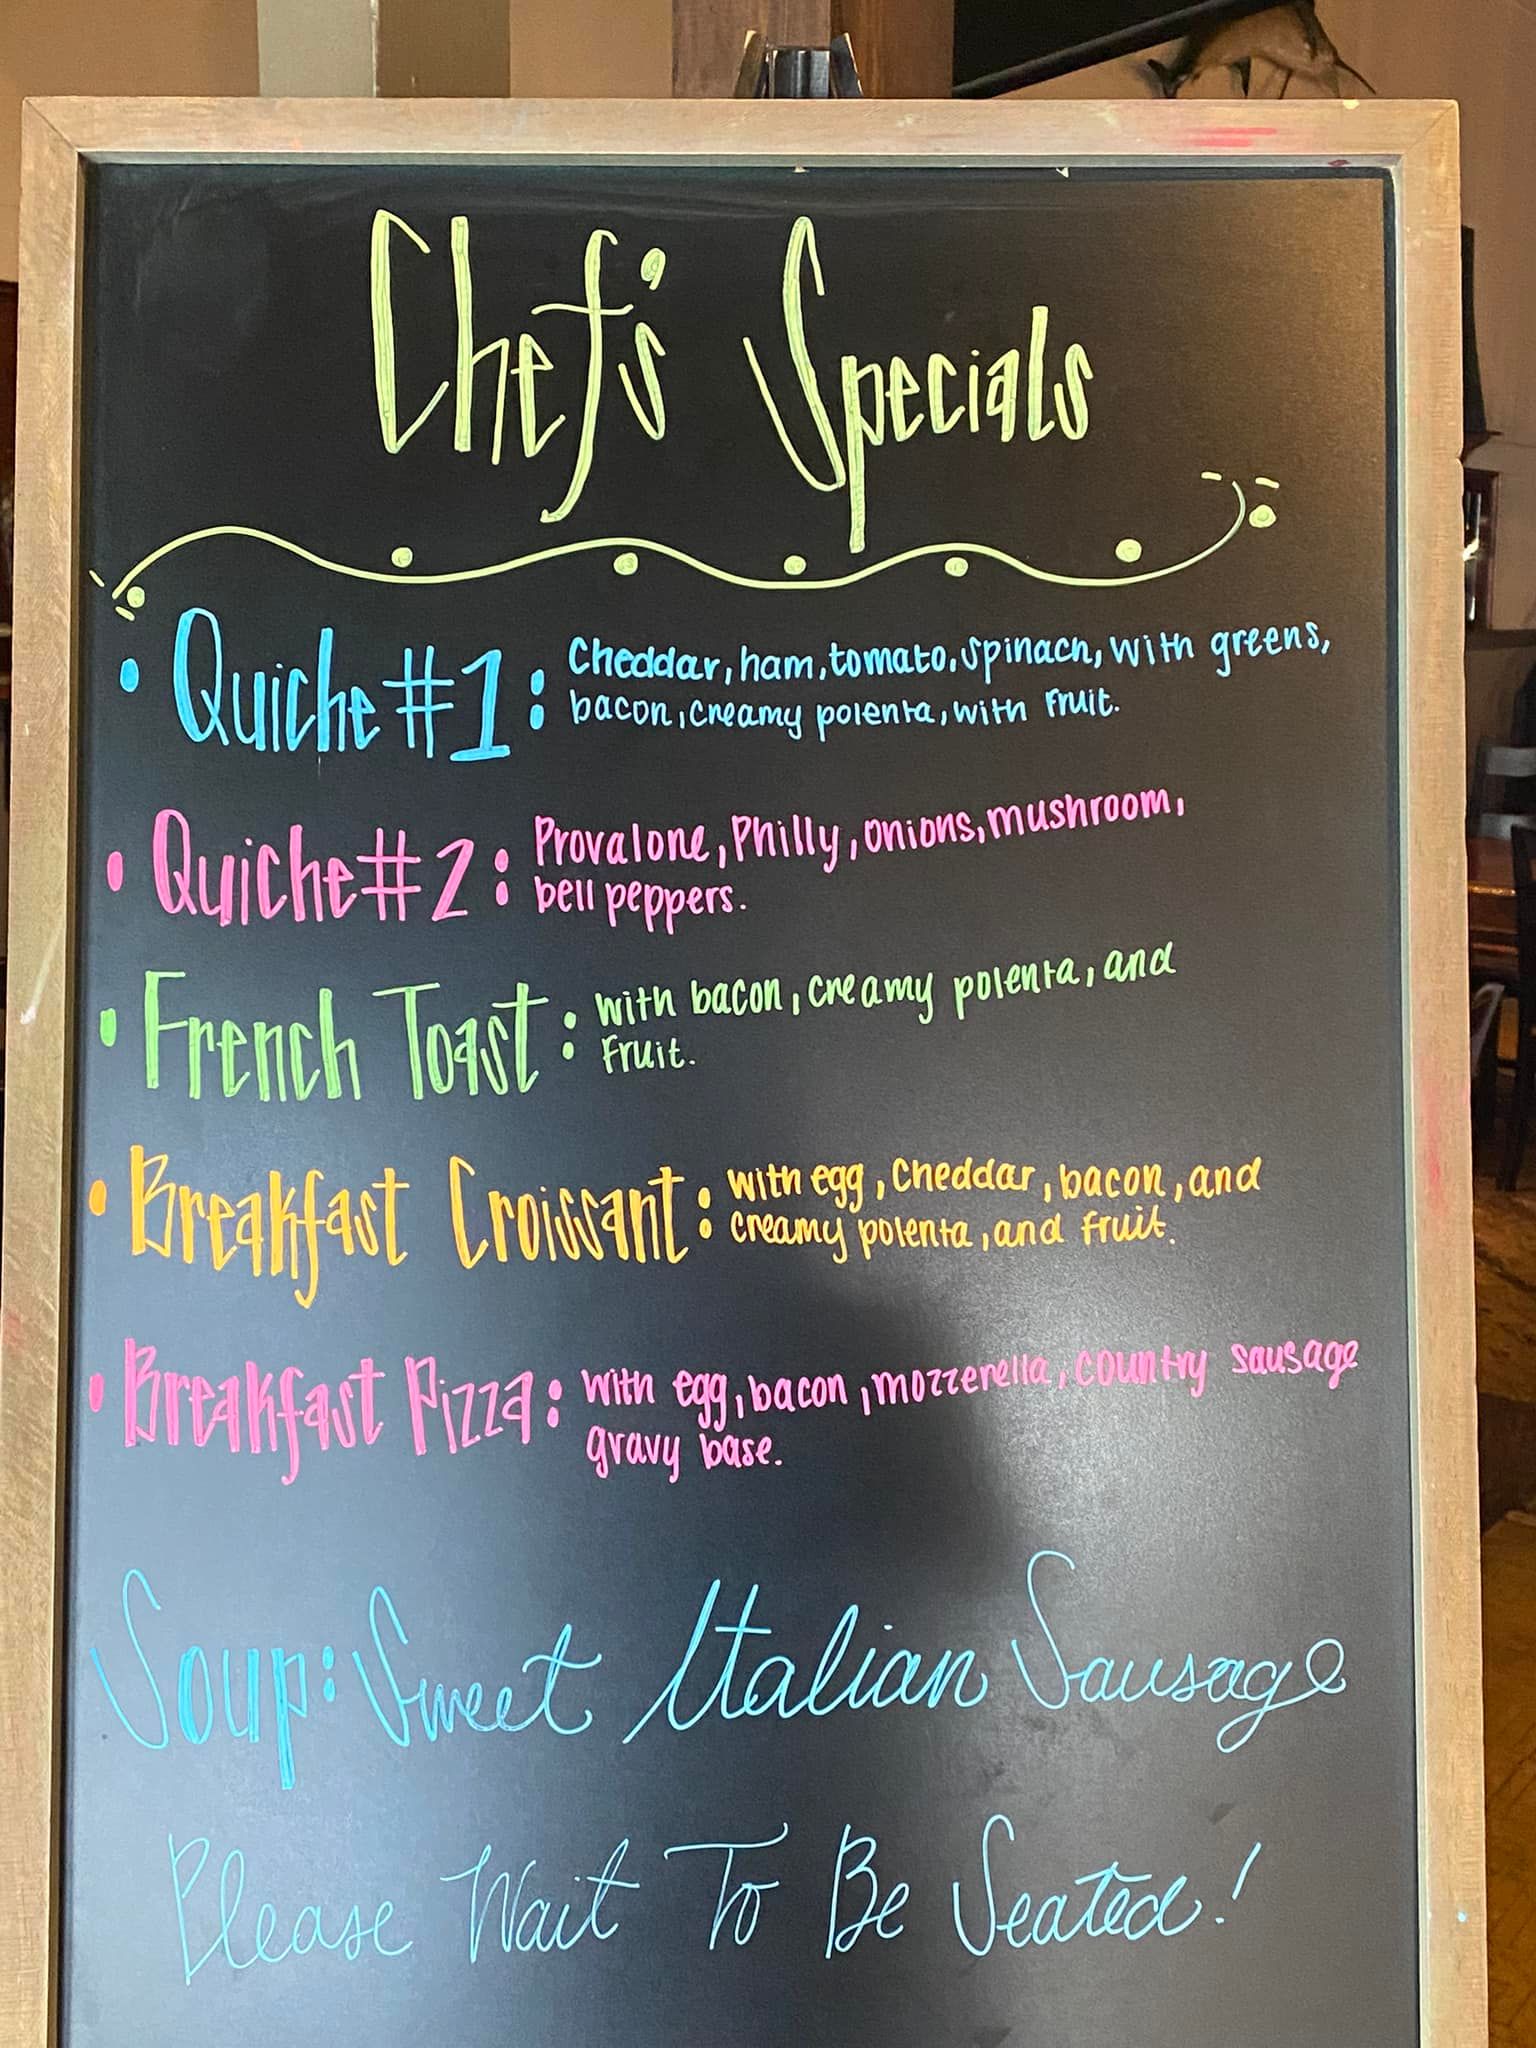 Chef's Specials
• Quiche #1: Cheddar, ham, tomato, spinach, with greens,
bacon, creamy polenta, with fruit.
• Quiche #2: Provalone, Philly, onions, mushroom,
bell peppers.
• French Toast: with bacon, creamy polenta, and
fruit.
• Breakfast Croissant: with egg, cheddar, bacon, and
creamy polenta, and fruit.
• Breakfast Pizza: with egg, bacon, mozzerella, country sausage
gravy base.
Soup: Sweet Italian Sausage
Please Wait To Be Seated!